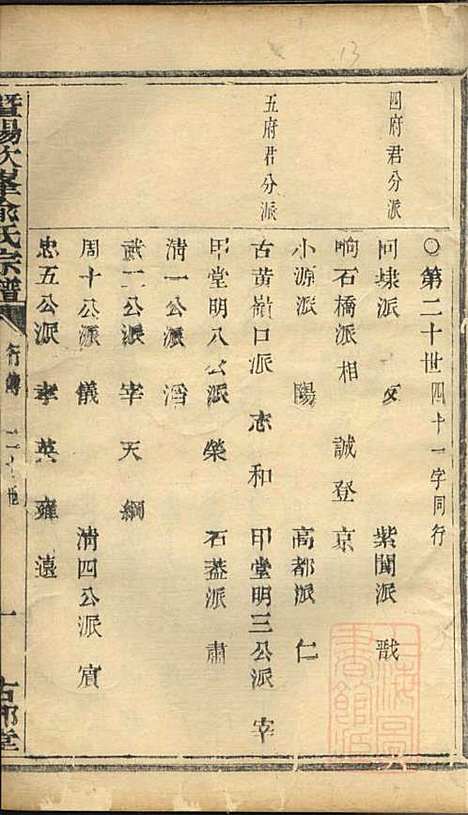 13
四府君分派
五府君分派
○第二十世四十一字同行
同埭派 文 紫閬派 戩
响石橋派相 誠登 京
小源派 陽 高都派 仁
古黄嶺口派 志 和 印堂明三公派 宰
印堂明八公派 榮 石蓋派 肅
清一公派 滔
武二公派 宰 天 綱
周十公派 儀 清四公派 賓
忠五公派 孝 英 雍 遠
暨陽次峯俞氏宗譜
行傳 二十世
一